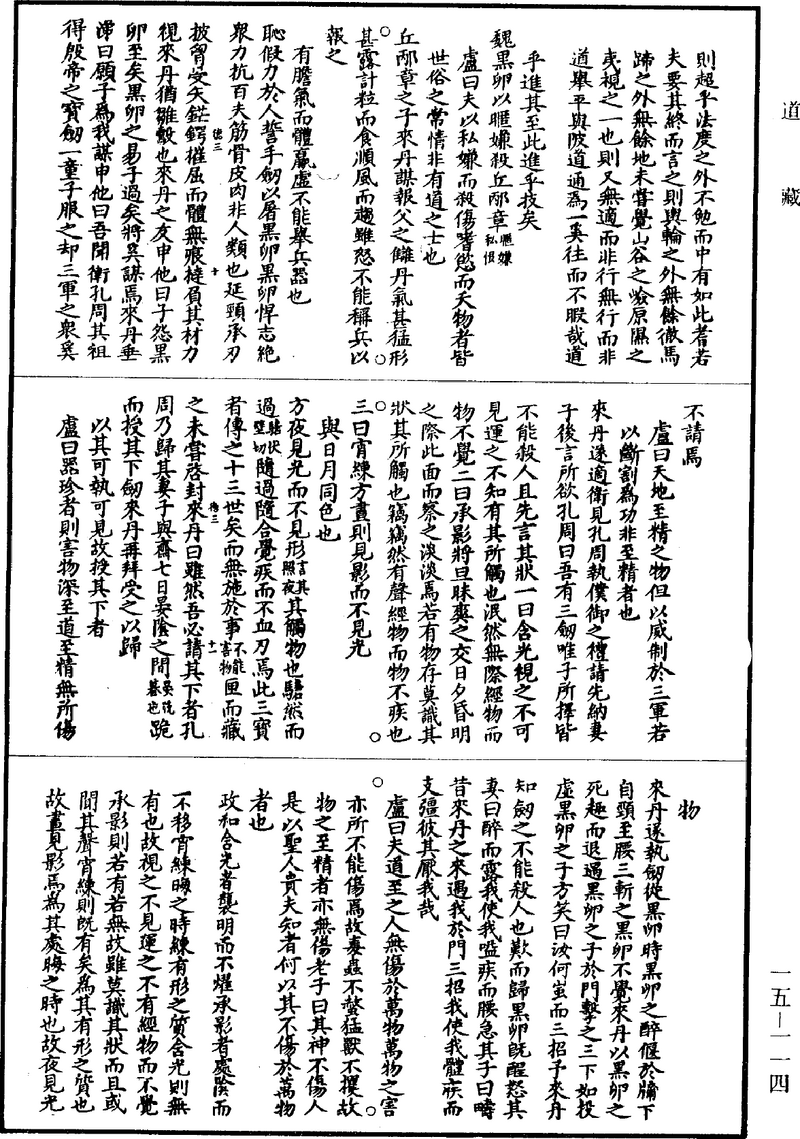 道藏
則超乎法度之外不勉而中有如此者若
夫要其終而言之則輿輪之外無餘徹馬
蹄之外無餘地未嘗覺山谷之嶮原隰之
夷視之一也則又無適而非行無行而非
道舉平與陂道通為一奚往而不暇哉道
乎進其至此進乎技矣
魏黑卵以暱嫌殺丘邴章暱嫌私恨
盧曰夫以私嫌而殺傷嗜慾而夭物者皆
世俗之常情非有道之士也
丘邴章之子來丹謀報父之讎丹氣甚猛形
甚露計粒而食順風而趨雖怒不能稱兵以
報之
有膽氣而體羸虛不能舉兵器也
恥假力於人誓手劒以屠黑卵黑卵悍志絕
眾力抗百夫筋骨皮肉非人類也延頸承刃
披胷受矢鋩鍔摧屈而體無痕撻負其材力
視來丹猶雛鷇也來丹之友申他曰子怨黑
卵至矣黑卵之易子過矣將奚謀焉來丹垂
涕曰願子為我謀申他曰吾聞衛孔周其祖
得殷帝之寶劒一童子服之却三軍之眾奚
不請焉
盧曰天地至精之物但以威制於三軍若
以斷割為功非至精者也
來丹遂適衛見孔周執僕御之禮請先納妻
子後言所欲孔周曰吾有三劒唯子所擇皆
不能殺人且先言其狀一曰含光視之不可
見運之不知有其所觸也泯然無際經物而
物不覺二曰承影將旦昧爽之交日夕昏明
之際北面而察之淡淡焉若有物存莫識其
狀其所觸也竊竊然有聲經物而物不疾也
三曰宵練方晝則見影而不見光
與日月同色也
方夜見光而不見形言其照夜其觸物也騞然而
過騞休壁切隨過隨合覺疾而不血刃焉此三寶
者傳之十三世矣而無施於事不能害物匣而藏
之未嘗啓封來丹曰雖然吾必請其下者孔
周乃歸其妻子與齋七日晏陰之間晏晚暮也跪
而授其下劒來丹再拜受之以歸
以其可執可見故授其下者
盧曰器珍者則害物深至道至精無所傷
物
來丹遂執劒從黑卵時黑卵之醉偃於牖下
自頸至腰三斬之黑卵不覺來丹以黑卵之
死趣而退遇黑卵之子於門擊之三下如投
虛黑卵之子方笑曰汝何蚩而三招予來丹
知劒之不能殺人也歎而歸黑卵既醒怒其
妻曰醉而露我使我嗌疾而腰急其子曰疇
昔來丹之來遇我於門三招我使我體疾而
支彊彼其厭我哉
盧曰夫道至之人無傷於萬物萬物之害
亦所不能傷焉故毒蟲不螫猛獸不攫故
物之至精者亦無傷老子曰其神不傷人
是以聖人貴夫知者何以其不傷於萬物
者也
政和含光者襲明而不耀承影者處陰而
不移宵練晦之時練有形之質含光則無
有也故視之不見運之不有經物而不覺
承影則若有若無故雖莫識其狀而且或
聞其聲宵練則既有矣為其有形之質也
故晝見影焉為其處晦之時也故夜見光
一五—一一四